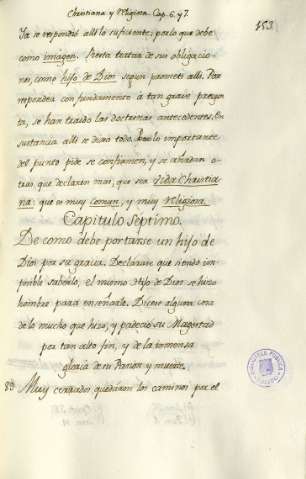 Christiana y Religiosa Cap. 6. y 7.
153
Ya se respondió allí lo suficiente, por lo que debe
como imagen. Resta tratar de sus obligacio-
nes, como hijo de Dios segun prometí allí. Para
responder con fundamento à tan grave pregun-
ta, se han traido las doctrinas antecedentes. En
sustancia allí se dixo todo. Pero lo importante
del punto pide se confirmen, y se añadan o-
tras, que declaren mas, que sea Vida Christia-
na: que es muy comun, y muy Religiosa.
Capitulo Septimo.
De como debe portarse un hijo de
Dios por su gracia. Declarase que siendo im-
posible saberlo, el mismo Hijo de Dios se hizo
hombre para enseñarle. Dicese alguna cosa
de lo mucho que hizo, y padeció su Magestad
por tan alto fin, y de la inmensa
gloria de su Pasion y muerte.
89 Muy cerrados quedaron los caminos por el